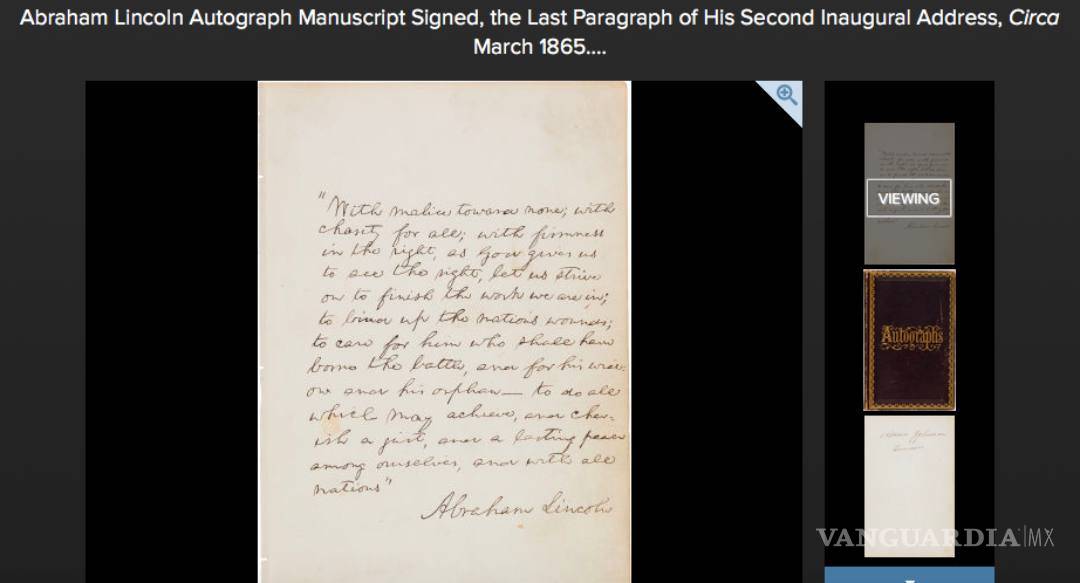 Abraham Lincoln Autograph Manuscript Signed, the Last Paragraph of His Second Inaugural Address, Circa
March 1865....
"With malice toward none; with
charity for all; with firmness
in the right, as God gives us
to see the right, let us strive
on to finish the work we are in;
to bind up the nations wounds;
to care for him who shall have
borne the battle, and for his wid-
ow and his orphan— to do all
which may achieve, and cher-
ish a just, and a lasting peace
among ourselves, and with all
nations"
Abraham Lincoln
VIEWING
Autographs
VANGUARDIA|MX